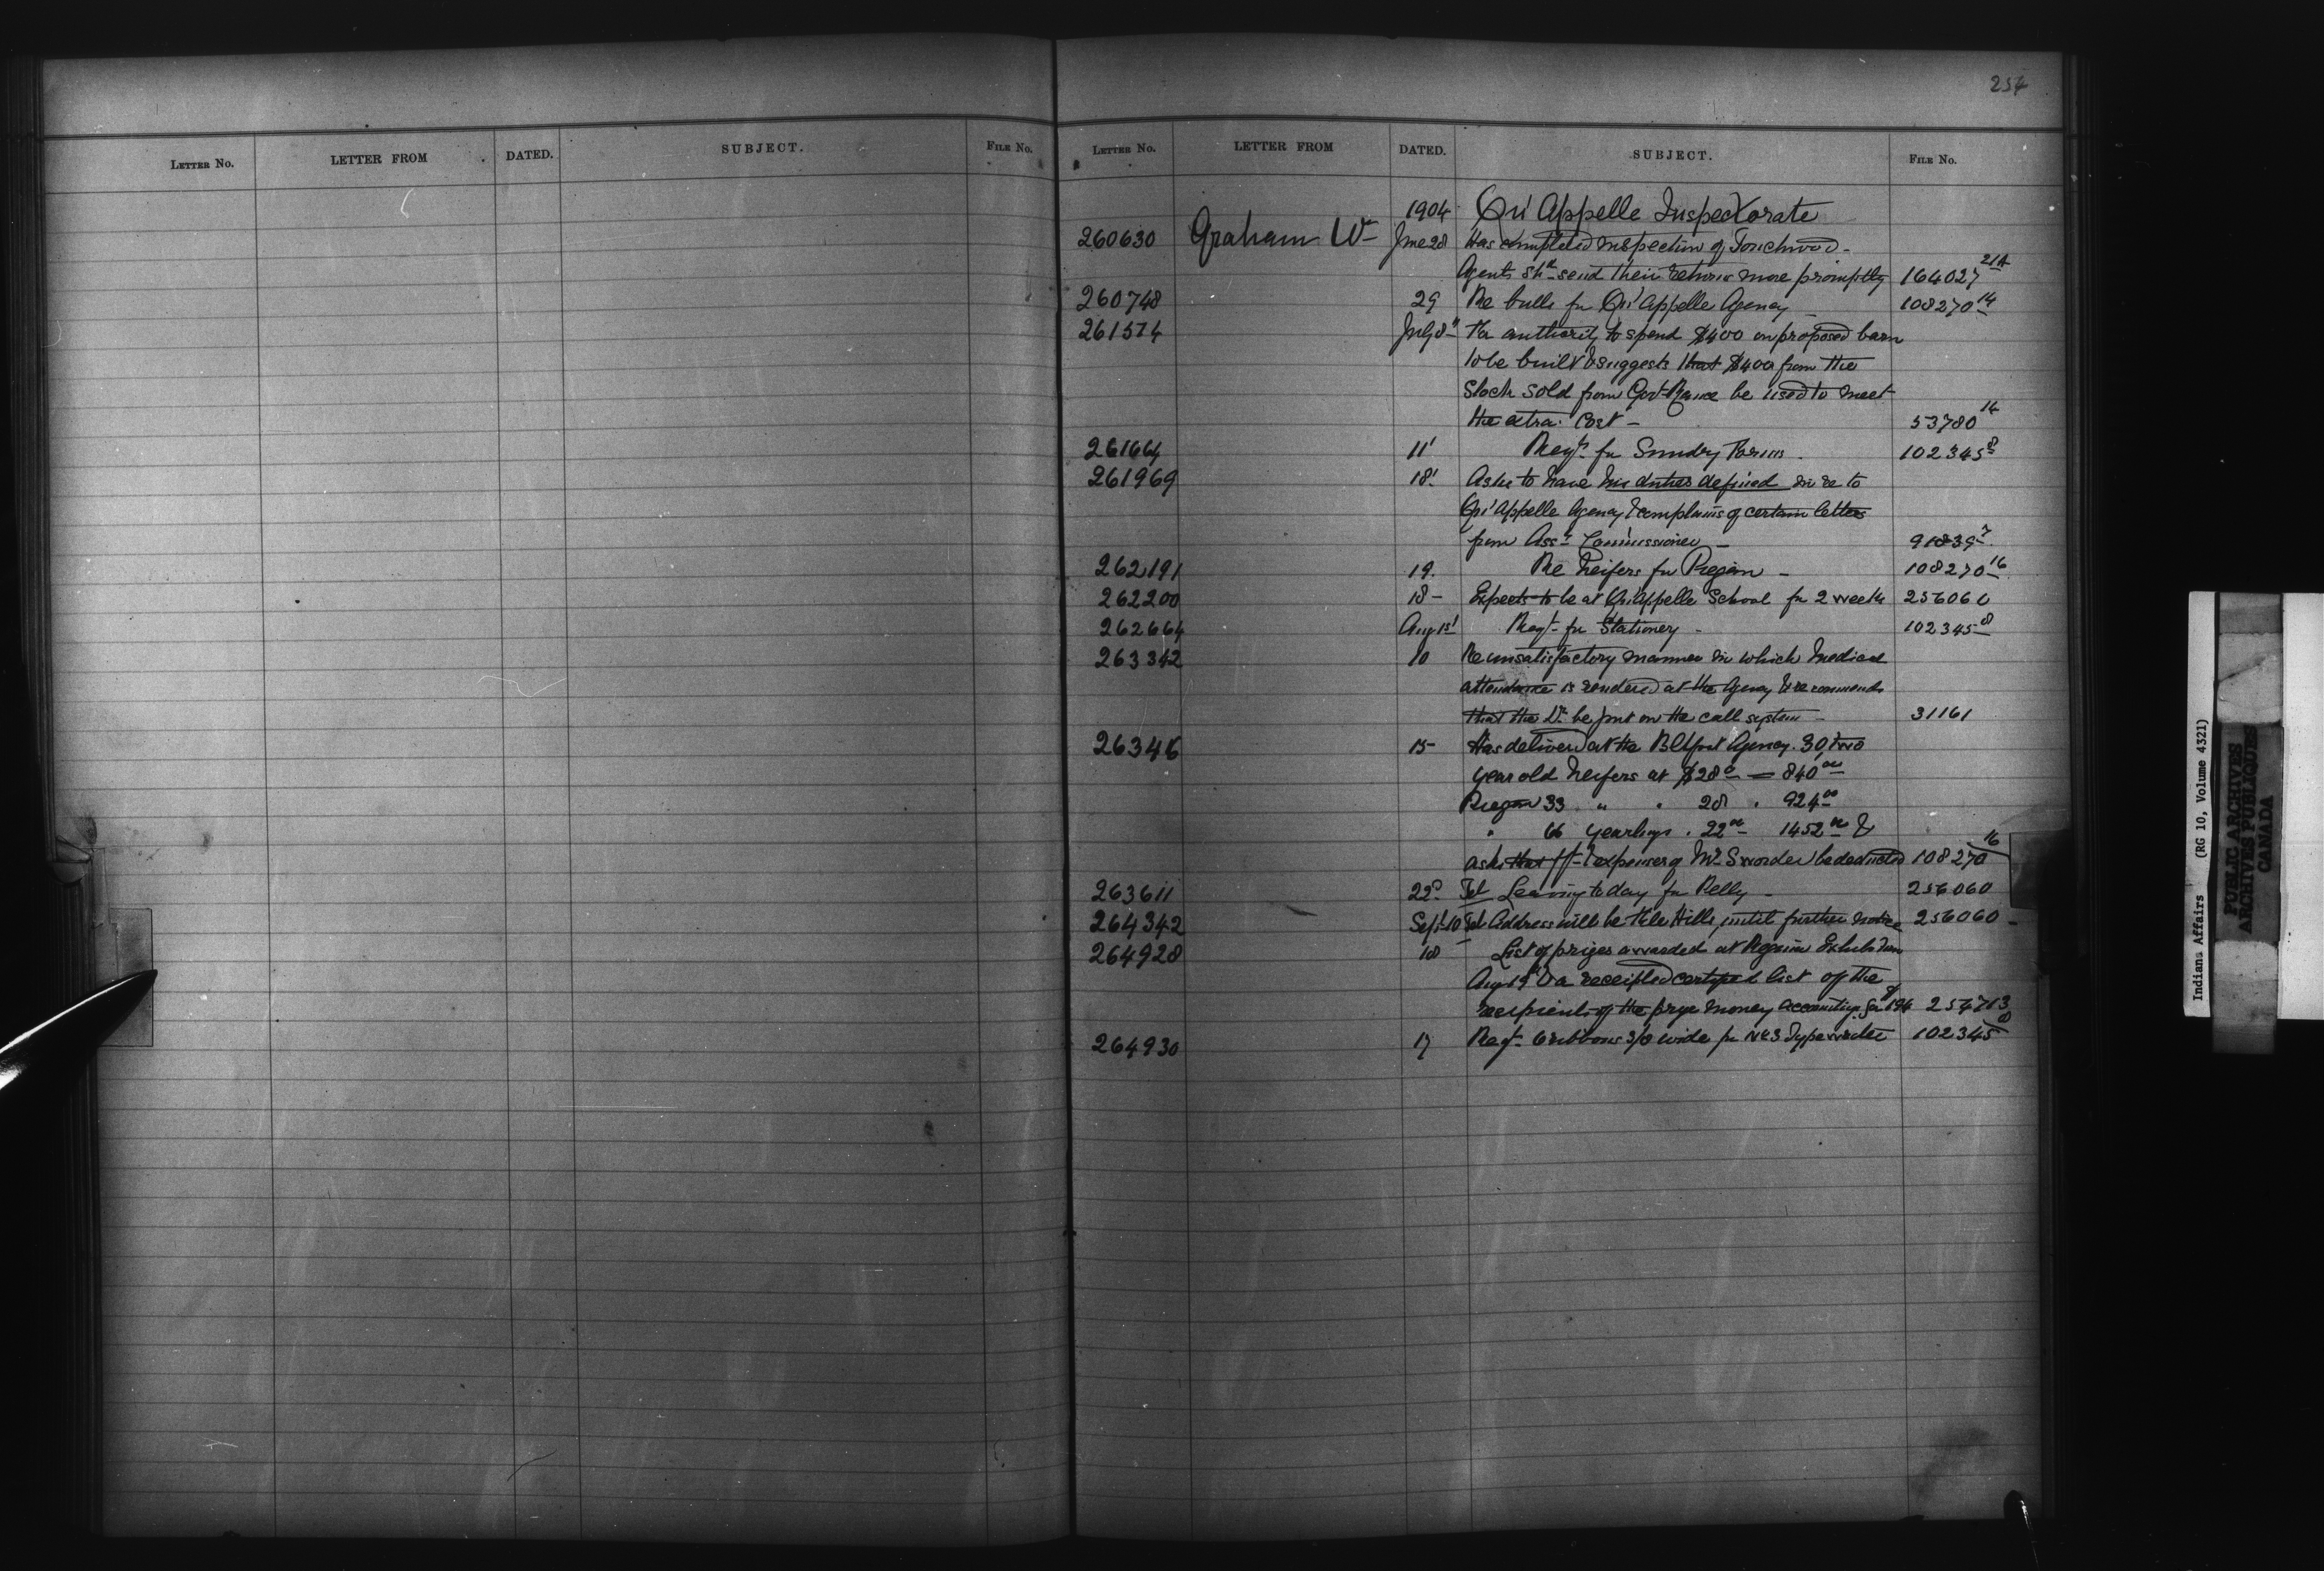 254
LETTER NO. LETTER FROM DATED. SUBJECT. FILE NO.
LETTER NO. LETTER FROM DATED. SUBJECT. FILE NO.
1904 Qu'Appelle Inspectorate
260630 Graham W June 28 Has completed inspection of Touchwood -
Agents shd send their returns more promptly 164027 21A
260748 29 Re bulls for Qu'Appelle Agency 108270 14
261514 July 8 authority to spend $400 on proposed barn
to be built & suggests that $400 from the
Stock sold from Govt be used to meet
the extra cost - 53780 14
26166 11 Reqt for Sundry Forms 102345 8
261969 18 Asks to have his duties defined in re to
Qu'Appelle Agency & complains of certain letters
from Asst Commissioner - 91839 7
262191 19. Re heifers for - 108270 16
262200 18 - Expects to be at Qu'Appelle School for 2 weeks 25606
262664 Aug 1st Reqt for Stationery - 102345 8
263342 10 Re unsatisfactory manner in which medical
attendance is rendered at the Agency & recommends
that the Dr be put on the call system - 31161
26346 15 Has delivered at the Agency 30 two
year old heifers at $28 = 840 00
33 " " 28 " 924 00
" 66 yearlings " 22 00 1452 00 &
asks that expenses of Mr Sworder be deducted 108270 16
263611 22 Tel Leaving to day for Pelly - 256060
264342 Sept 10 Tel Address will be File Hills, until further notice 256060 -
264928 18 List of prizes awarded at Regina Exhibition
Aug & a receipted certified list of the
recipients of the prize money accounting for $194 254713
264930 17 Reqt 6 ribbons 3/8 wide for No 3 Typewriter 102345 8
Indians Affairs (RG 10, Volume 4321)
PUBLIC ARCHIVES
ARCHIVES PUBLIQUES
CANADA